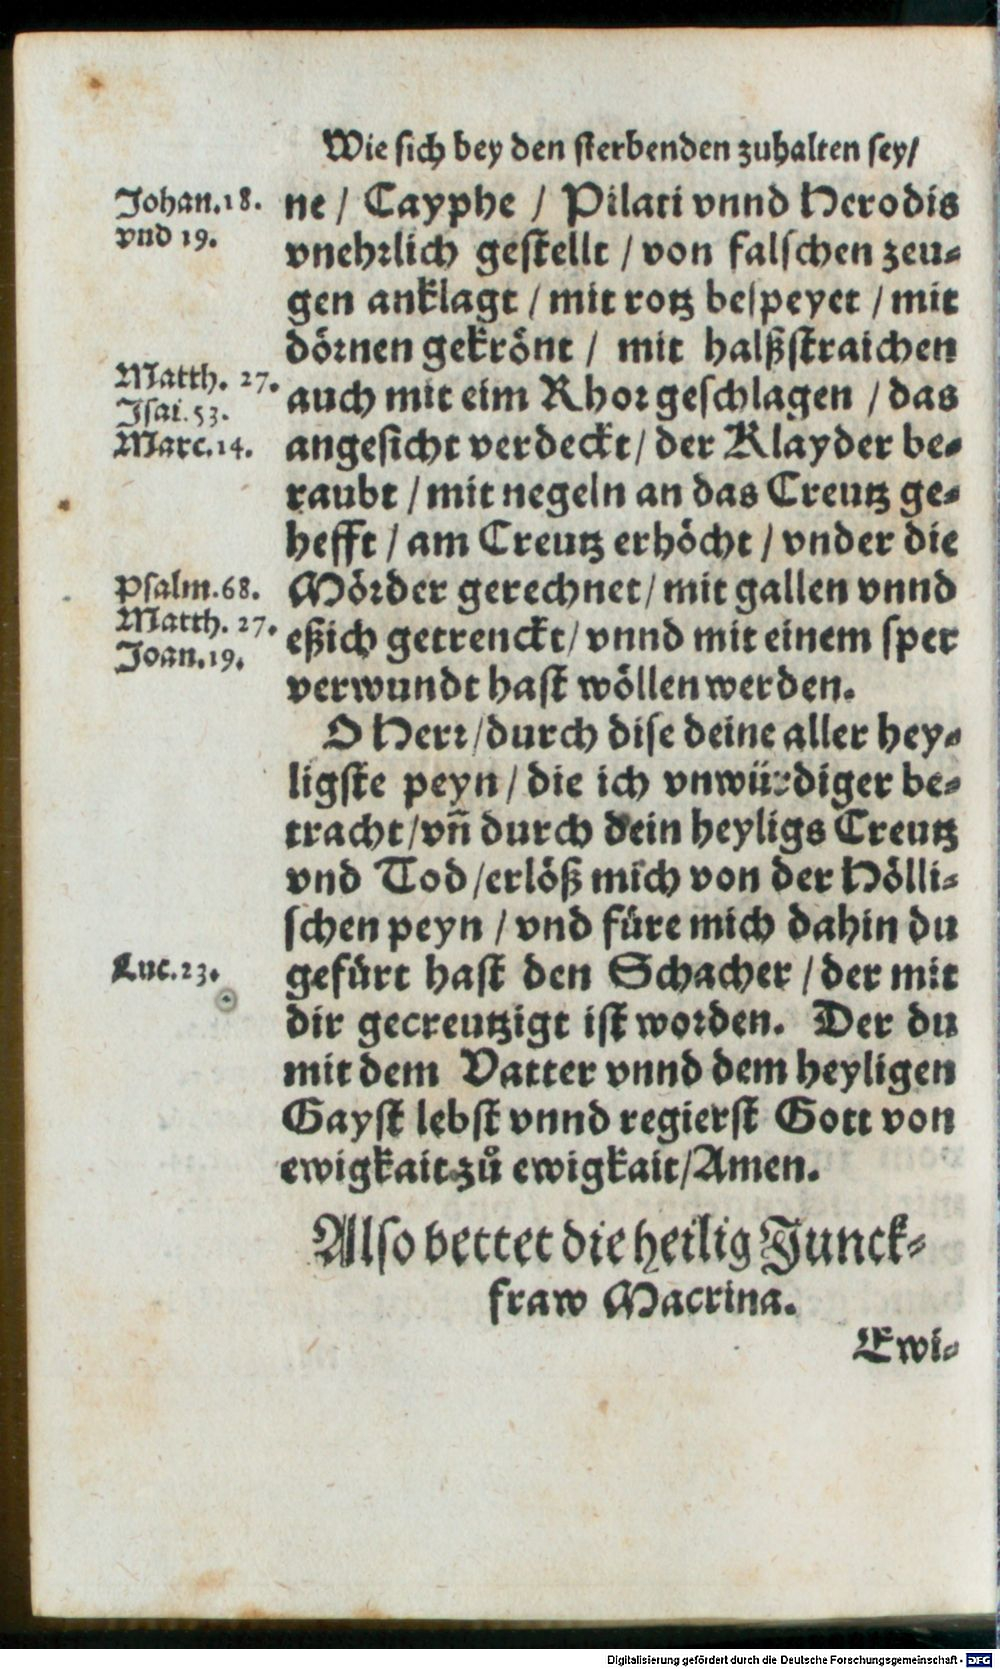 Wie sich bey den sterbenden zuhalten sey/
Johan.18.
vnd 19.
ne / Cayphe / Pilati vnnd Herodis
vnehrlich gestellt / von falschen zeu-
gen anklagt / mit rotz bespeyet / mit
dörnen gekrönt / mit halßstraichen
Matth. 27.
Isai. 53.
Marc.14.
auch mit eim Rhor geschlagen / das
angesicht verdeckt / der Klayder be-
raubt / mit negeln an das Creutz ge-
hefft / am Creutz erhöcht / vnder die
Psalm.68.
Matth. 27.
Joan.19.
Mörder gerechnet / mit gallen vnnd
eßich getrenckt / vnnd mit einem sper
verwundt hast wöllen werden.
O Herr / durch dise deine aller hey-
ligste peyn / die ich vnwürdiger be-
tracht / vñ durch dein heyligs Creutz
vnd Tod / erlöß mich von der Hölli-
schen peyn / vnd füre mich dahin du
Luc.23.
gefürt hast den Schacher / der mit
dir gecreutzigt ist worden. Der du
mit dem Vatter vnnd dem heyligen
Gayst lebst vnnd regierst Gott von
ewigkait zů ewigkait / Amen.
Also bettet die heilig Junck-
fraw Macrina.
Ewi-
Digitalisierung gefördert durch die Deutsche Forschungsgemeinschaft - DFG